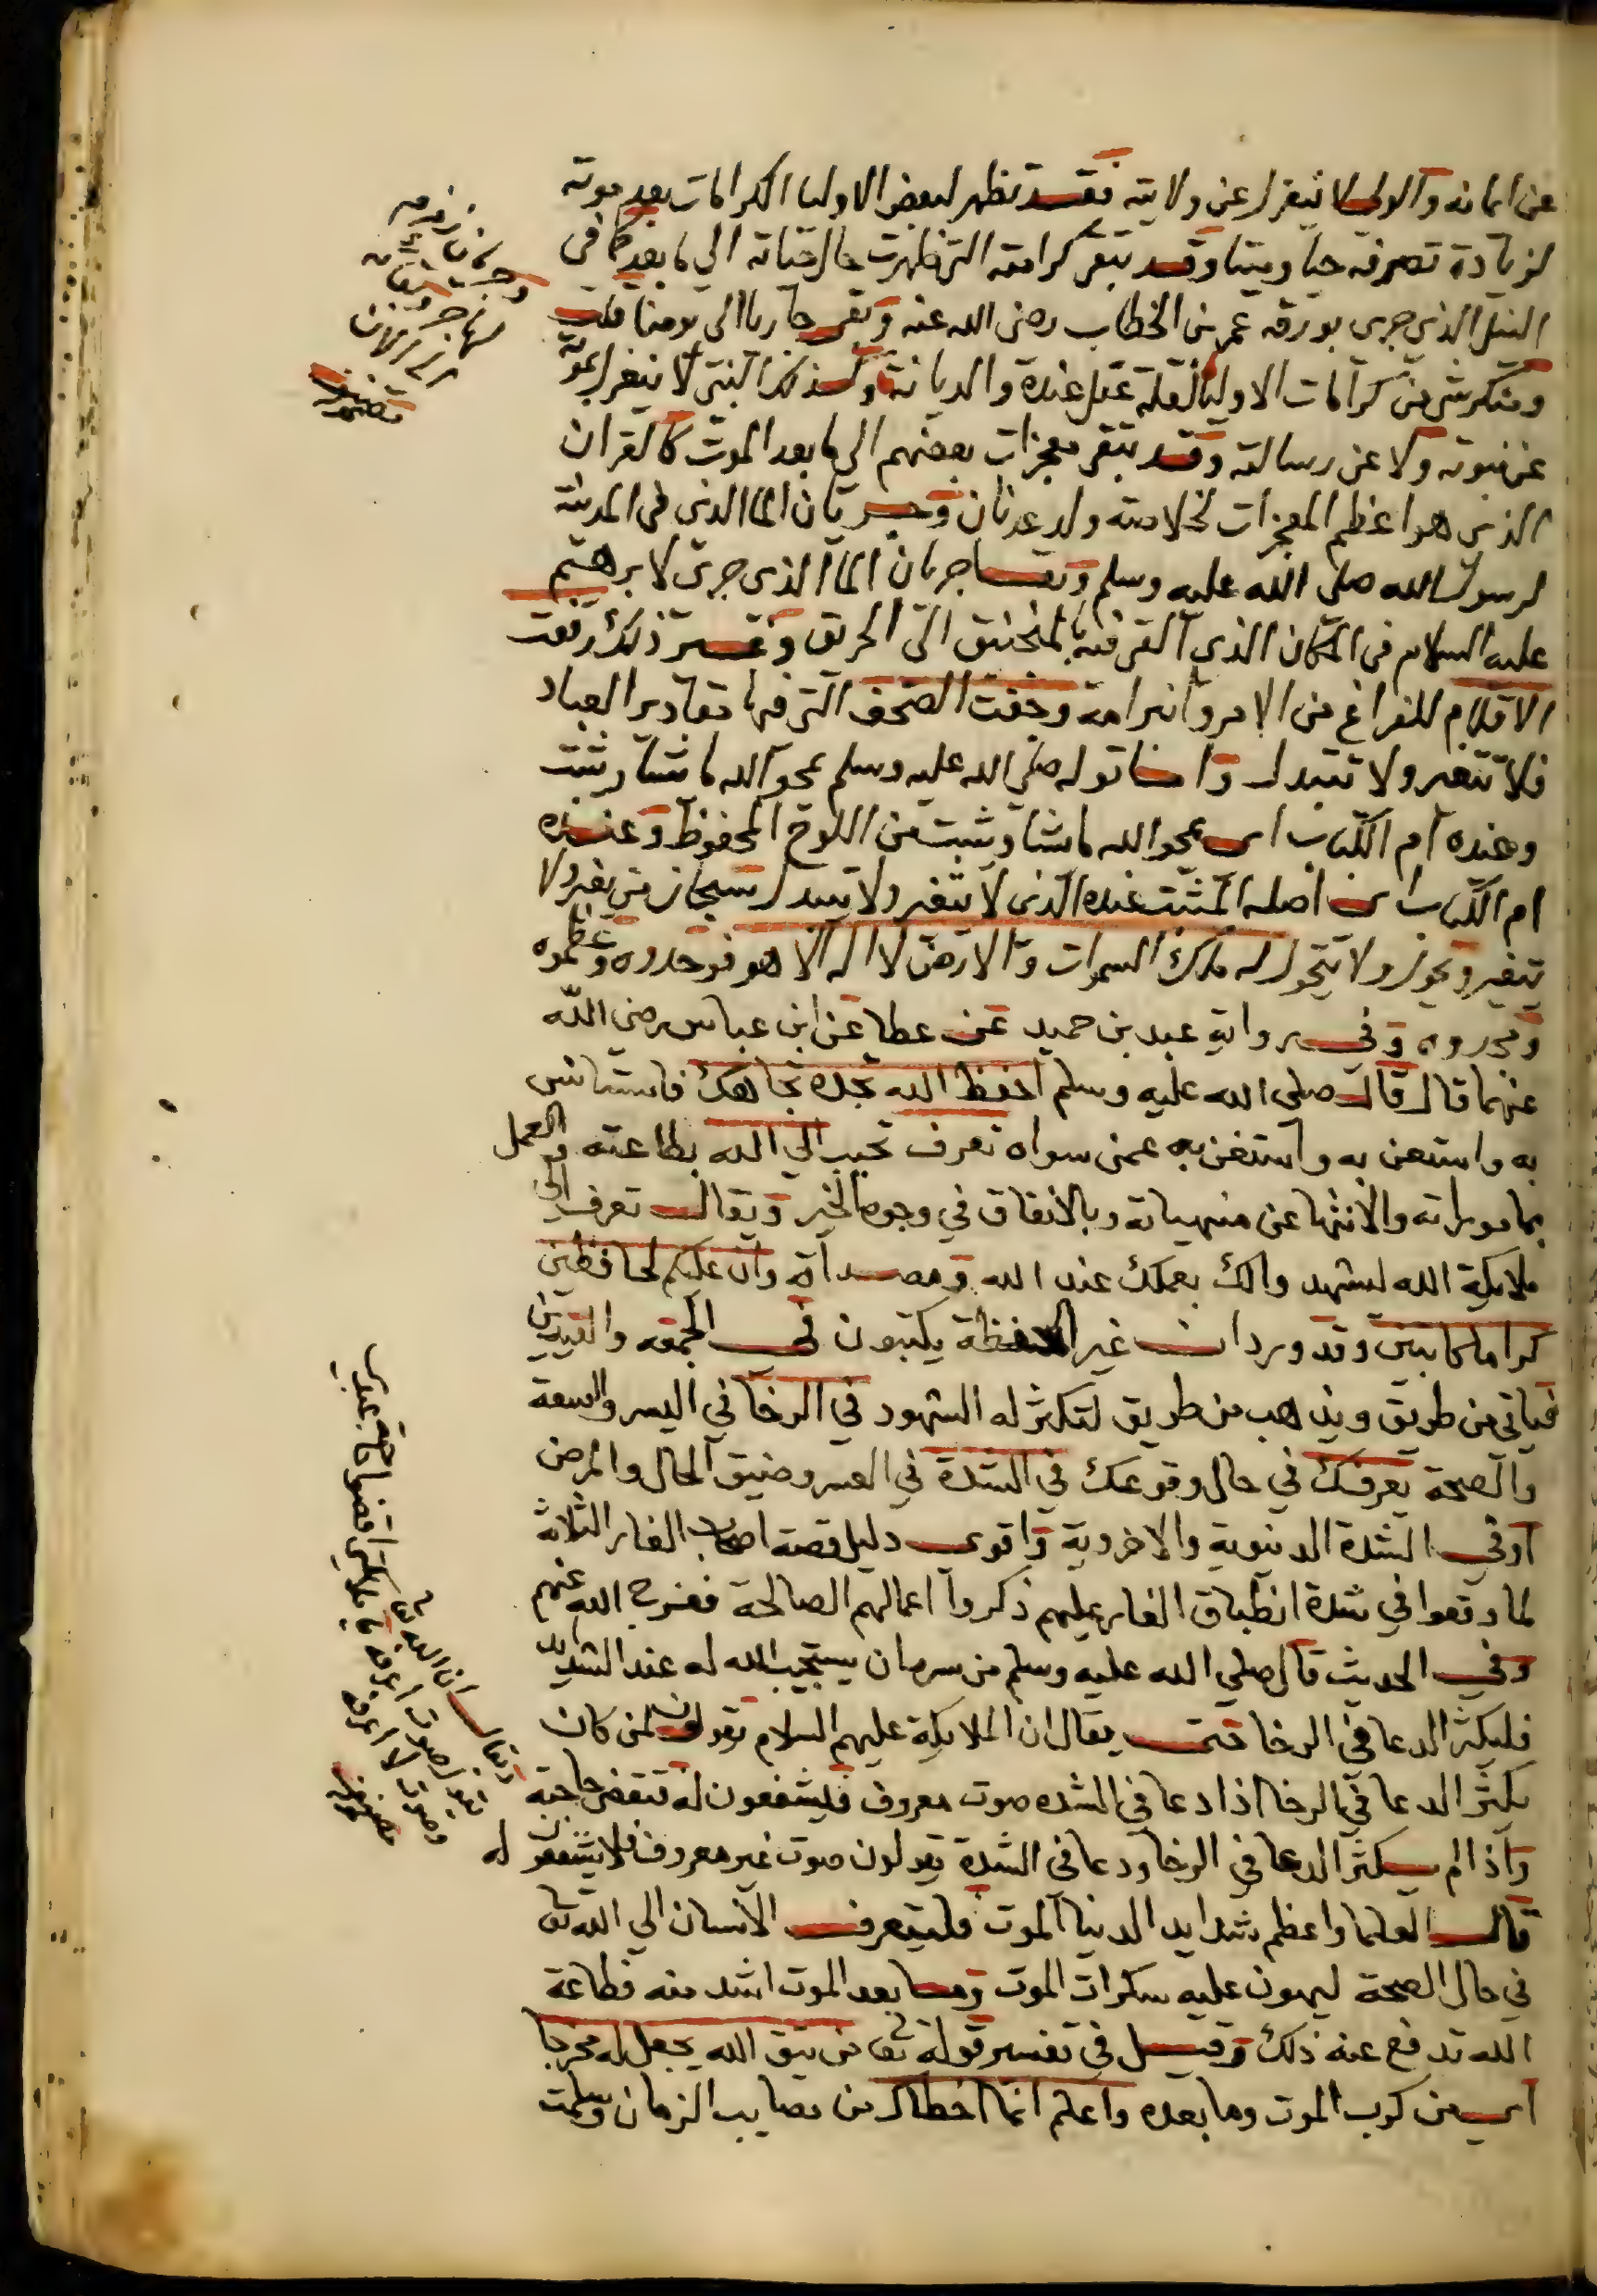 عن ايمانه والولي لا ينعزل عن ولايته فقد تظهر لبعض الاوليا الكرامات بعد موته
لزيادة تصرفه حيا وميتا وقد تبقى كرامته التي ظهرت حال حياته الي ما بعد كما في
النيل الذي جرى بورقة عمر بن الخطاب رضى الله عنه وبقى جاريا الى يومنا قلت
ومنكر شي من كرامات الاوليا لقلة عقل عنده والديانة وكذلك النبى لا ينعزل بموته
عن نبوته ولا عن رسالته وقد تبقى معجزات بعضهم الى ما بعد الموت كالقران
الذي هو اعظم المعجزات لخلاصة ولد عدنان وجريان الما الذى فى المدينة
لرسول الله صلى الله عليه وسلم وبقا جريان الما الذى جرى لابرهيم
عليه السلام في المكان الذي القى فيه بالمنجنيق الى الحريق وغير ذلك رفعت
الاقلام للفراغ من الامر وانبرامه وجفت الصحف التى فيها مقادير العباد
فلا تتغير ولا تتبدل واما قوله صلى الله عليه وسلم يمحو الله ما يشا ويثبت
وعنده ام الكتاب اى يمحو الله ما يشا ويثبت من اللوح المحفوظ وعنده
ام الكتاب اى اصله المثبت عنده الذى لا يتغير ولا يتبدل سبحان من يغير ولا
يتغير ويحول ولا يتحول له ملك السموات والارض لا اله الا هو فوحدوه وعظموه
ومجدوه وفى رواية عبد بن حميد عن عطا عن ابن عباس رضى الله
عنهما قال قال صلى الله عليه وسلم احفظ الله تجده تجاهك فاستانس
به واستعن به واستغن به عمن سواه تعرف تحبب الي الله بطاعته والعمل
بماموراته والانتها عن منهياته وبالانفاق في وجوه الخير ويقال تعرف الي
ملايكة الله ليشهدوا لك بعملك عند الله ومصداقه وان عليكم لحافظين
كراما كاتبين وقد ورد ان غير الحفظة يكتبون في الجمعه والعيدين
فياتي من طريق ويذهب من طريق لتكثر له الشهود في الرخا في اليسر والسعة
والصحة يعرفك في حال وقوعك في الشدة في العسر وضيق الحال والمرض
اوفي الشدة الدنيوية والاخروية واقوى دليل قصة اصحاب الغار الثلاثة
لما وقعوا في شدة انطباق الغار عليهم ذكروا اعمالهم الصالحة ففرج الله عنهم
وفي الحديث قال صلي الله عليه وسلم من سره ان يستجيب الله له عند الشدايد
فليكثر الدعا في الرخا يقال ان الملايكة عليهم السلام تقولون لمن كان
يكثر الدعا في الرخا اذا دعا في الشده صوت معروف فيشفعون له فتقضى حاجته
واذا لم يكثر الدعا في الرخا ودعا في الشدة يقولون صوت غير معروف فلا يشفعون له
قال العلما واعظم شدايد الدنيا الموت فليتعرف الانسان الي الله تعا
في حال الصحة ليهون عليه سكرات الموت وما بعد الموت اشد منه فطاعة
الله تدفع عنه ذلك وقيل في تفسير قوله تعا من يتق الله يجعل له مخرجا
اي من كرب الموت وما بعده واعلم انما اخطاك من مصايب الزمان وسلمت
ويقال ان الله تعا
يقول صوت اعرفه يا ملايكتي اقضوا حاجة عبدي
وصوت لا اعرفه